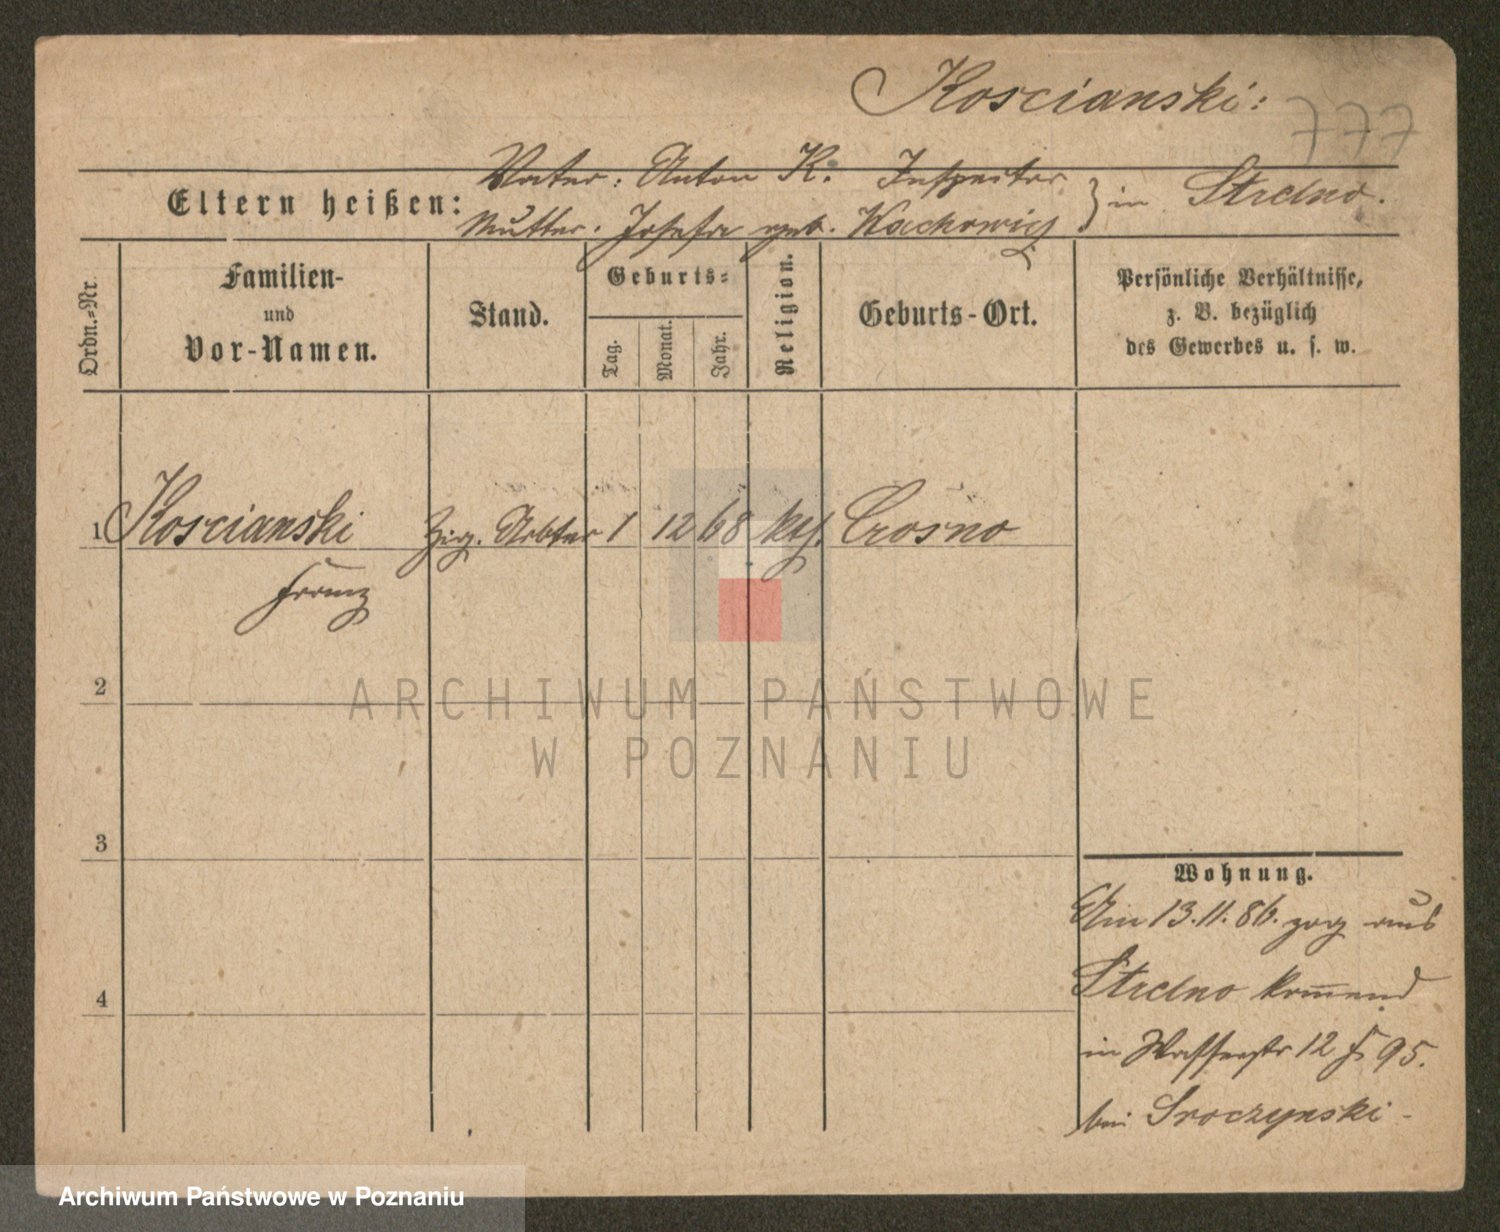 Koscianski:
777
Vater: Anton K. Inspector
Eltern heißen:
Mutter: Josefa geb. Kachowicz } in Strelno.
Ordn.-Nr.
Familien- und Vor-Namen.
Stand.
Geburts-
Tag.
Monat.
Jahr.
Religion.
Geburts-Ort.
Persönliche Verhältnisse,
z. B. bezüglich
des Gewerbes u. s. w.
1 Koscianski Zig. Arbter 1 12 68 kth. Crosno
Franz
2
ARCHIWUM PAŃSTWOWE
W POZNANIU
3
Wohnung.
Am 13.11.86. zog aus
Strelno kommend
4
in Wasserstr 12 95.
bei Sroczynski
Archiwum Państwowe w Poznaniu